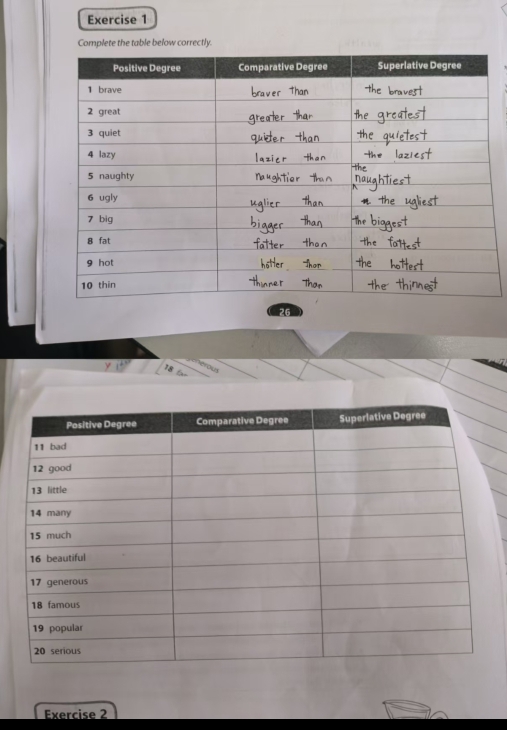 Exercise 1
Complete the table below correctly.
Positive Degree Comparative Degree Superlative Degree
1 brave braver than the bravest
2 great greater than the greatest
3 quiet quieter than the quietest
4 lazy lazier than the laziest
5 naughty naughtier than the naughtiest
6 ugly uglier than the ugliest
7 big bigger than the biggest
8 fat fatter than the fattest
9 hot hotter than the hottest
10 thin thinner than the thinnest
26
Positive Degree Comparative Degree Superlative Degree
11 bad
12 good
13 little
14 many
15 much
16 beautiful
17 generous
18 famous
19 popular
20 serious
Exercise 2